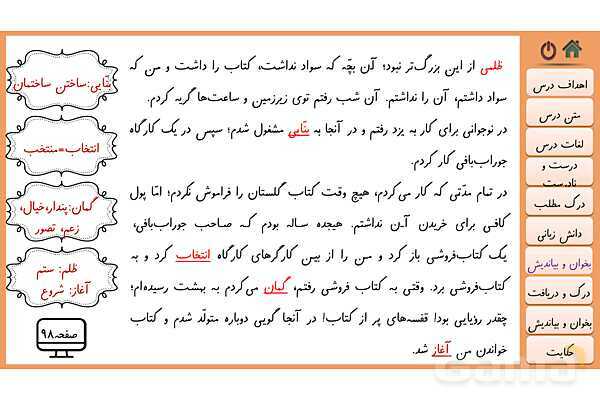 ظلمی از این بزرگ‌تر نبود؛ آن بچّه که سواد نداشت، کتاب را داشت و من که
سواد داشتم، آن را نداشتم. آن شب رفتم توی زیرزمین و ساعت‌ها گریه کردم.
در نوجوانی برای کار به یزد رفتم و در آنجا به بنّایی مشغول شدم؛ سپس در یک کارگاه
جوراب‌بافی کار کردم.
در تمام مدّتی که کار می‌کردم، هیچ وقت کتاب گلستان را فراموش نکردم؛ امّا پول
کافی برای خریدن آن نداشتم. هیجده ساله بودم که صاحب جوراب‌بافی،
یک کتاب‌فروشی باز کرد و من را از بین کارگرهای کارگاه انتخاب کرد و به
کتاب‌فروشی برد. وقتی به کتاب فروشی رفتم، گمان می‌کردم به بهشت رسیده‌ام؛
چقدر رؤیایی بود! قفسه‌های پر از کتاب! در آنجا گویی دوباره متولّد شدم و کتاب
خواندن من آغاز شد.
بنّایی:ساختن ساختمان
انتخاب=منتخب
گمان:پندار،خیال،
زعم، تصور
ظلم: ستم
آغاز: شروع
صفحه۹۸
اهداف درس
متن درس
لغات درس
درست و
نادرست
درک مطلب
دانش زبانی
بخوان و بیاندیش
درک و دریافت
بخوان و بیاندیش
حکایت
Gama